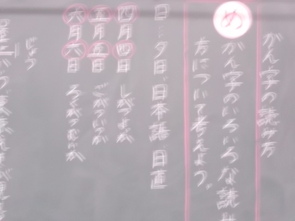 がん字の読み方
め
がん字のいろいろな読み
方について考えよう。
日:夕日 日本語 日直
四月四日 しがつよっか
五月五日 ごがついつか
六月六日 ろくがつむいか
じょう